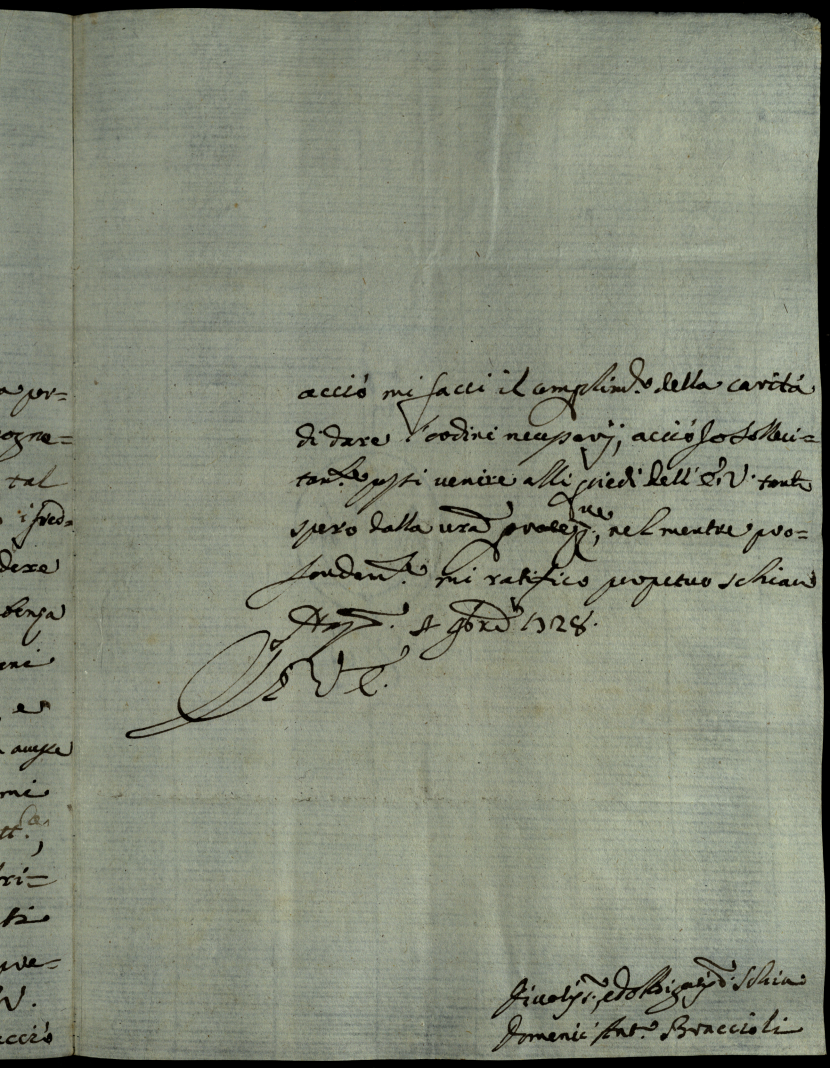 a per=
ogne=
tal
i fred=
dere
benza
eni
e
auere
mi
tt.ᵃ,
ri=
ti
ue=
V.
acciò
acciò mi facci il complim.ᵗᵒ della carità
di dare l'ordini necessarij, acciò Io solleci=
tam.ᵗᵉ possi venire alli piedi dell'E. V. tanto
spero dalla vrã protez.ⁿᵉ, nel mentre pro=
fondam.ᵗᵉ mi ratifico perpetuo schiavo
9bre 1728.
Di V. E.
Diuotiss.ᵒ, ed obligatiss.ᵒ Schiauo
Domenic' Ant.ᵒ Braccioli